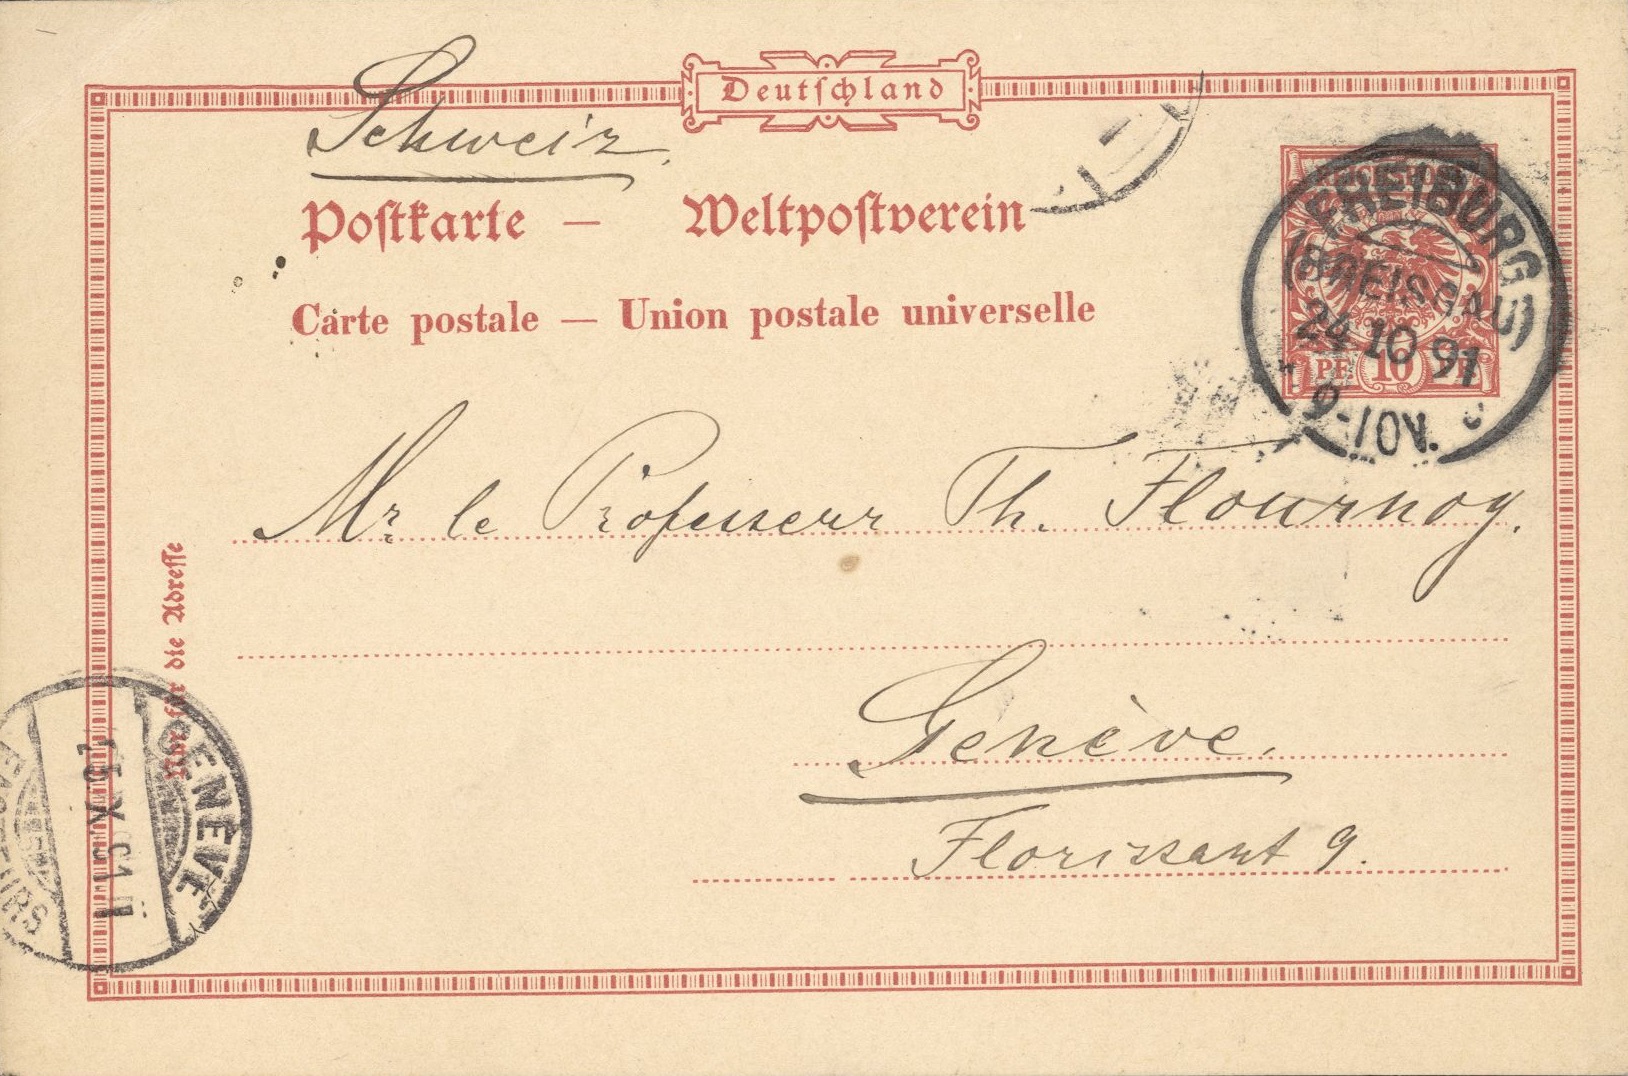 Deutschland
Schweiz
Postkarte — Weltpostverein
Carte postale — Union postale universelle
REICHSPOST
10
FREIBURG
(BREISGAU)
24 10 91
9-10V.
Mr le Professeur Th. Flournoy.
Genève.
Florissant 9.
Nur für die Adresse
GENÈVE
25 X 91